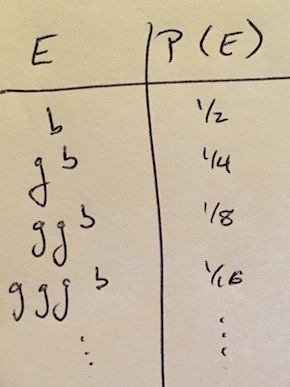 E P(E)
b 1/2
gb 1/4
ggb 1/8
ggg b 1/16
⋮ ⋮